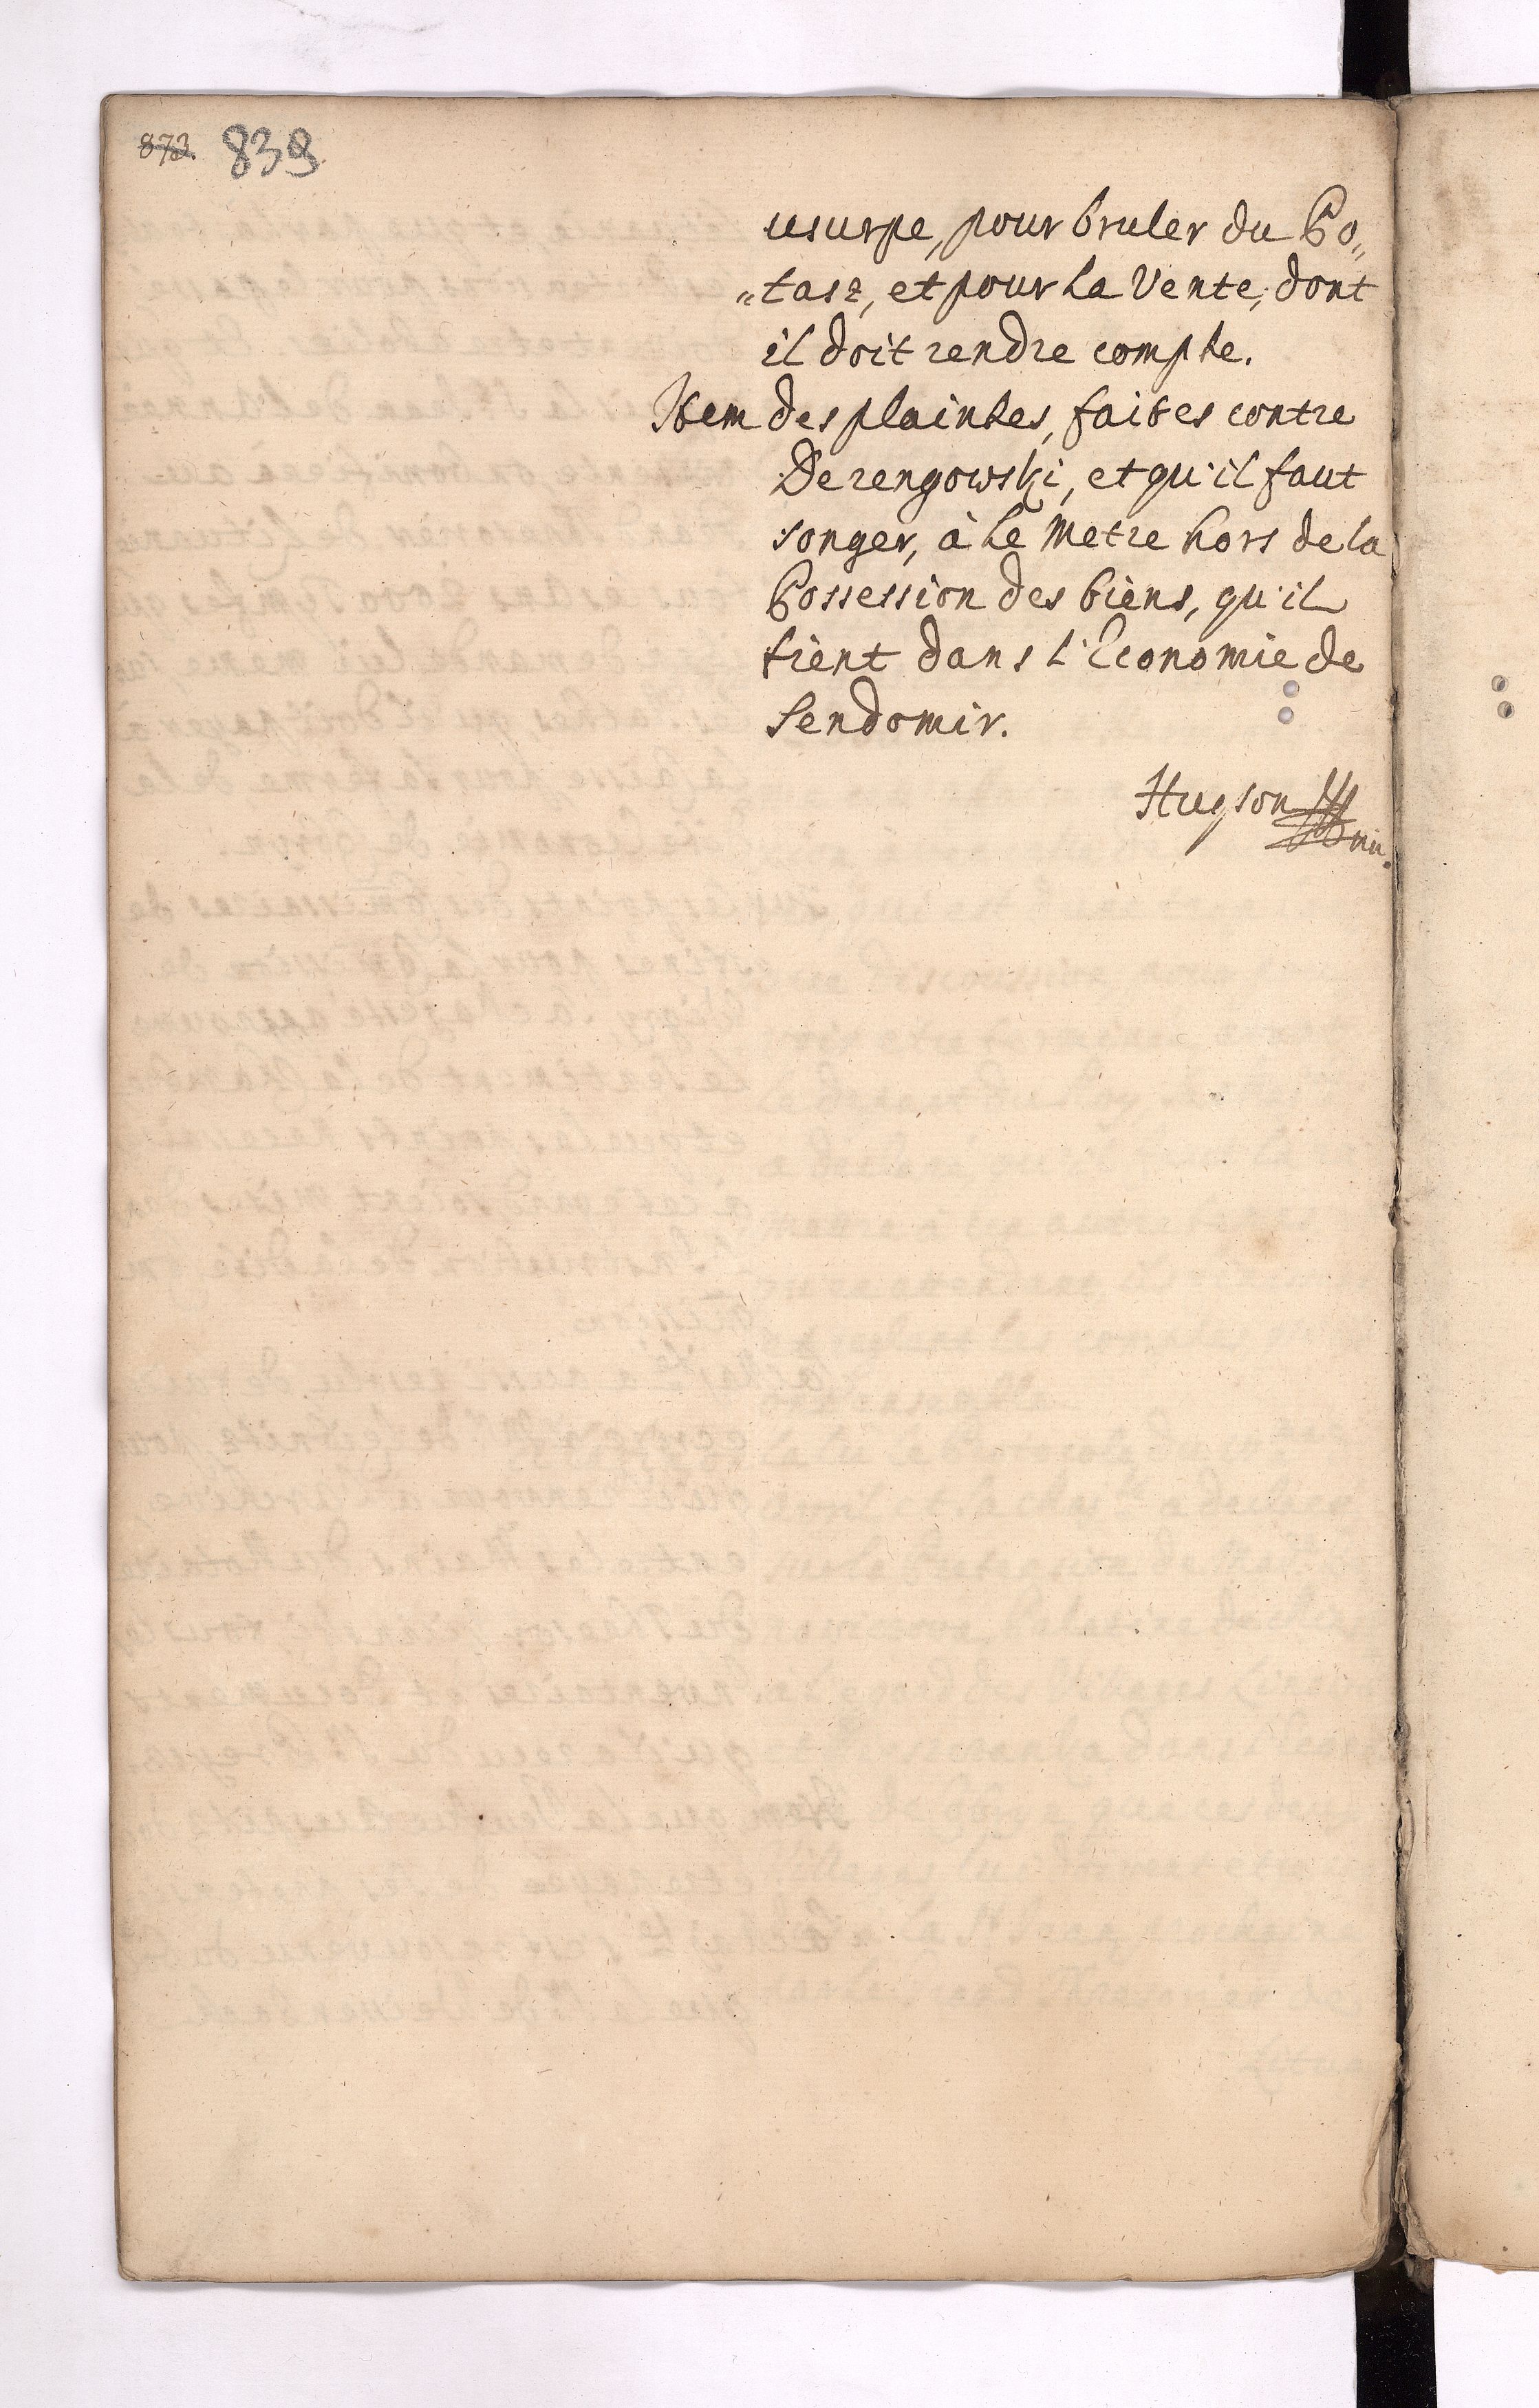 873. 839
usurpe, pour bruler du Po„
„tasz, et pour la Vente, dont
il doit rendre compte.
Item des plaintes, faites contre
Derengowski, et qu'il faut
songer, à le metre hors de la
Possession des biens, qu'il
tient dans l'Economie de
Sendomir.
Hugson